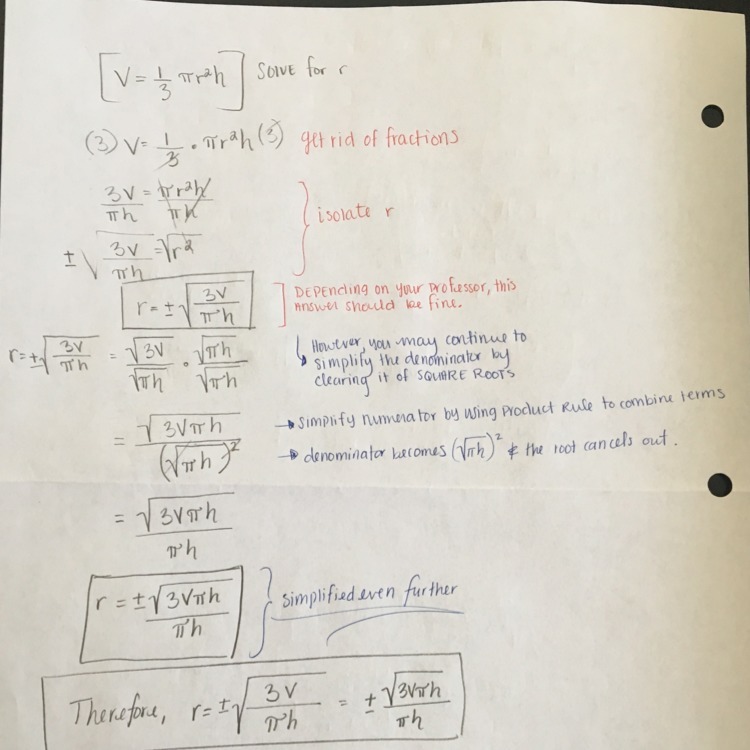 [V = 1/3 πr²h] SOLVE for r
(3) V = 1/3 • πr²h (3) get rid of fractions
3V/πh = πr²h/πh
isolate r
± √(3V/πh) = √r²
r = ± √(3V/πh)
DEPENDING on your professor, this
answer should be fine.
r = ± √(3V/πh) = √3V/√πh • √πh/√πh
However, you may continue to
simplify the denominator by
clearing it of SQUARE ROOTS
= √3Vπh/(√πh)²
→ simplify numerator by using Product Rule to combine terms
→ denominator becomes (√πh)² & the root cancels out.
= √3Vπh/πh
r = ± √3Vπh/πh
simplified even further
Therefore, r = ± √(3V/πh) = ± √3Vπh/πh